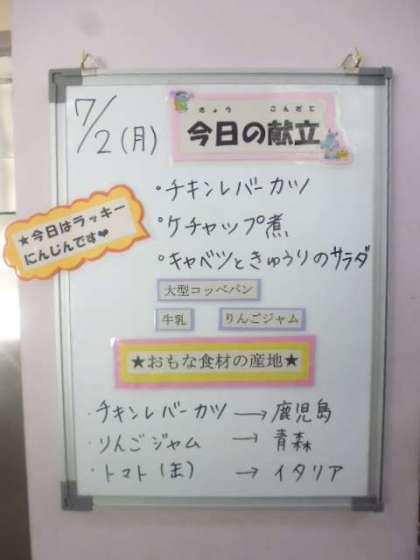 7/2(月)
きょう こんだて
今日の献立
・チキンレバーカツ
★今日はラッキー
にんじんです❤
・ケチャップ煮
・キャベツときゅうりのサラダ
大型コッペパン
牛乳 りんごジャム
★おもな食材の産地★
・チキンレバーカツ→鹿児島
・りんごジャム→青森
・トマト(缶)→イタリア